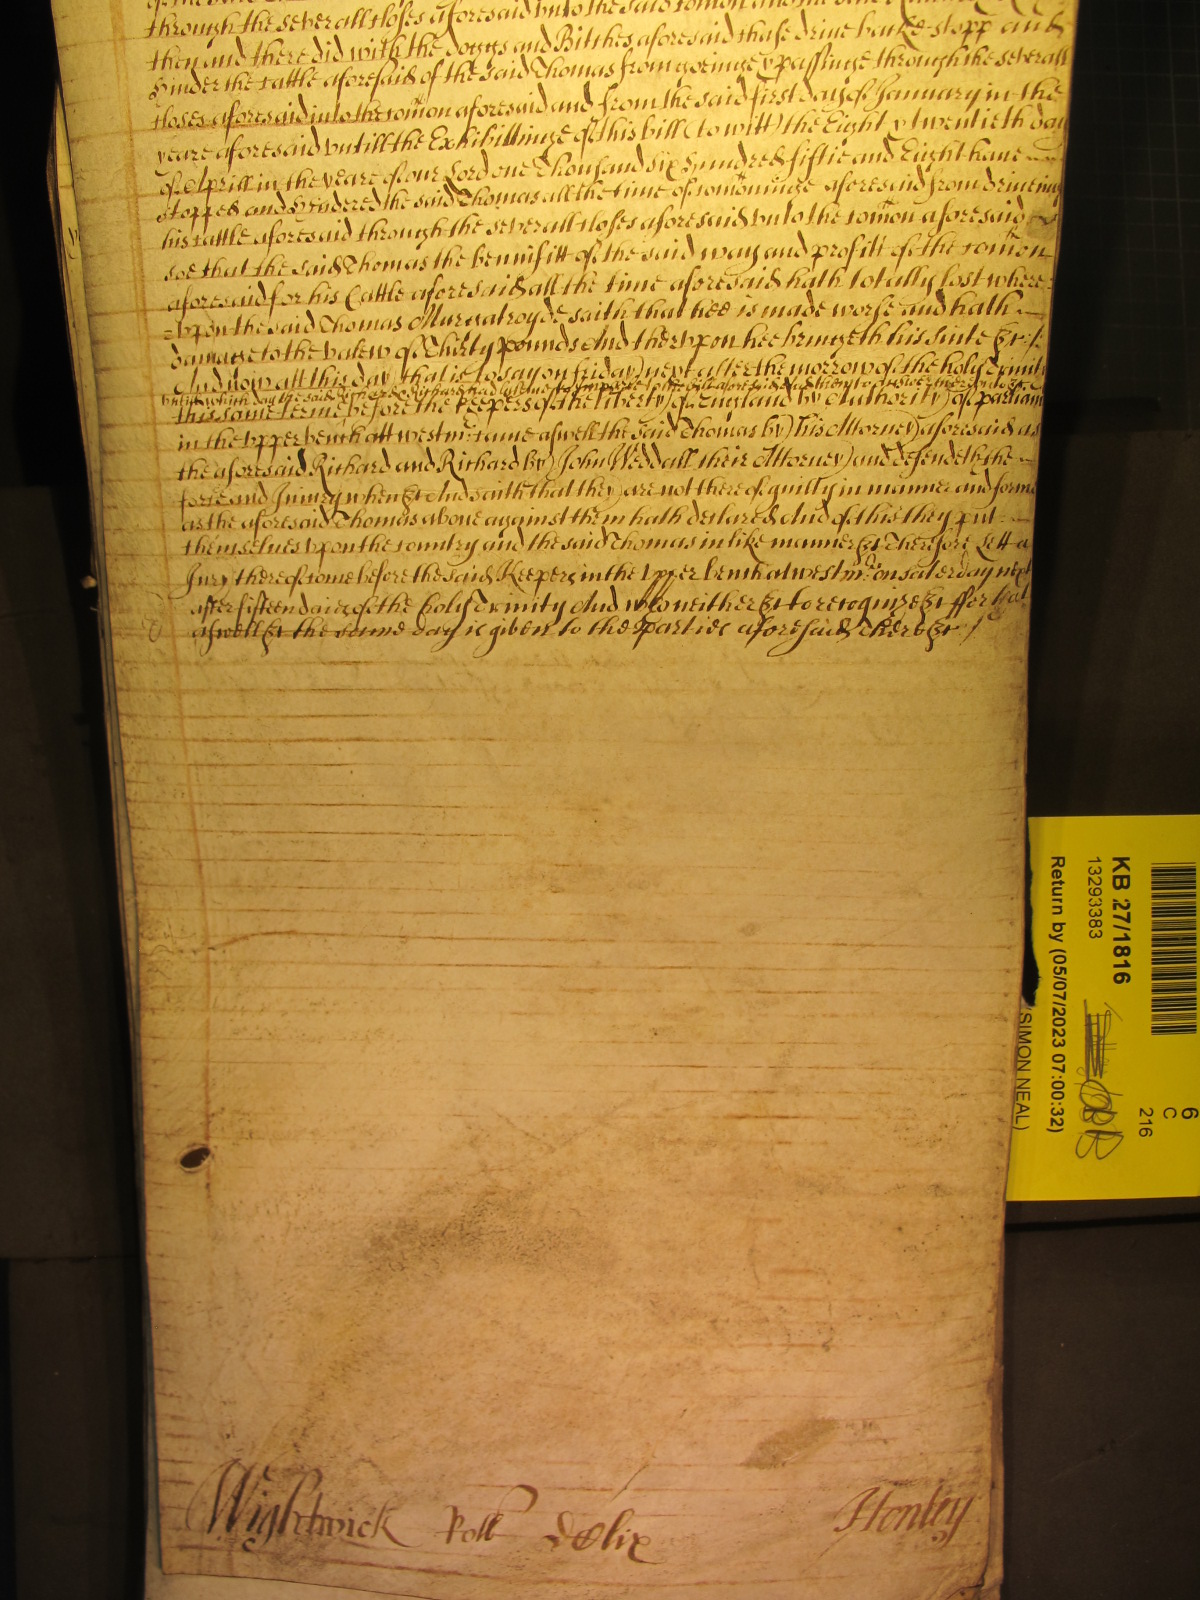 through the severall closes aforesaid vnto the said com̃on and the
then and there did with the doggs and Bitches aforesaid chase drive backe stopp and
hinder the Cattle aforesaid of the said Thomas from goeinge & passinge through the severall
closes aforesaid into the com̃on aforesaid and from the said first day of January in the
yeare aforesaid vntill the Exhibittinge of this bill (to witt) the Eight & twentieth day
of Aprill in the yeare of our Lord one Thousand six hundred fiftie and Eight haue
stopped and hindered the said Thomas all the time of com̃oninge aforesaid from driveing
his cattle aforesaid through the severall closes aforesaid vnto the com̃on aforesaid
soe that the said Thomas the bennifitt of the said way and profitt of the com̃on
aforesaid for his Cattle aforesaid all the time aforesaid hath totally lost where
vpon the said Thomas Murgatroyde saith that hee is made worse and hath
damage to the valew of Thirty pounds And thervpon hee bringeth his suite &c
And now att this day that is to say on friday next after the morrow of the holy Trinity
vntill which day the said Richard & Richard had licence to imparle to the bill aforesaid and then to answer
this same terme before the keepers of the liberty of England by Authority of parliam
in the vpper bench att westm̃ came aswell the said Thomas by his Attorney aforesaid as
the aforesaid Richard and Richard by John Weddall their Attorney and defendeth the
force and Iniury when &c And saith that they are not thereof guilty in manner and forme
as the aforesaid Thomas aboue against them hath declared And of this they put
themselues vpon the country and the said Thomas in like manner &c Therefore Lett a
Jury thereof come before the said Keepers in the vpper bench at westm̃ on saterday next
after fifteen daies of the holy Trinity And who neither &c to recognize &c
aswell &c the same day is given to the parties aforesaid there &c
Wightwick Roll Henley
KB 27/1816
13293383
Return by (05/07/2023 07:00:32)
(SIMON NEAL)
6
C
216